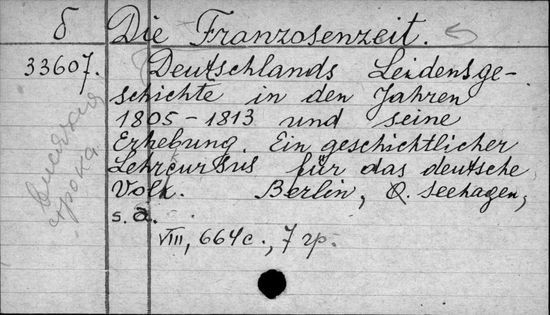 б Die Franzosenzeit.
33607. Deutschlands Leidensge-
schichte in den Jahren
1805-1813 und seine
Erhebung. Ein geschichtlicher
Lehrcursus für das deutsche
Volk. Berlin, O. Seehagen,
s.a.
VIII, 664 с., 7 гр.
висячая
строка